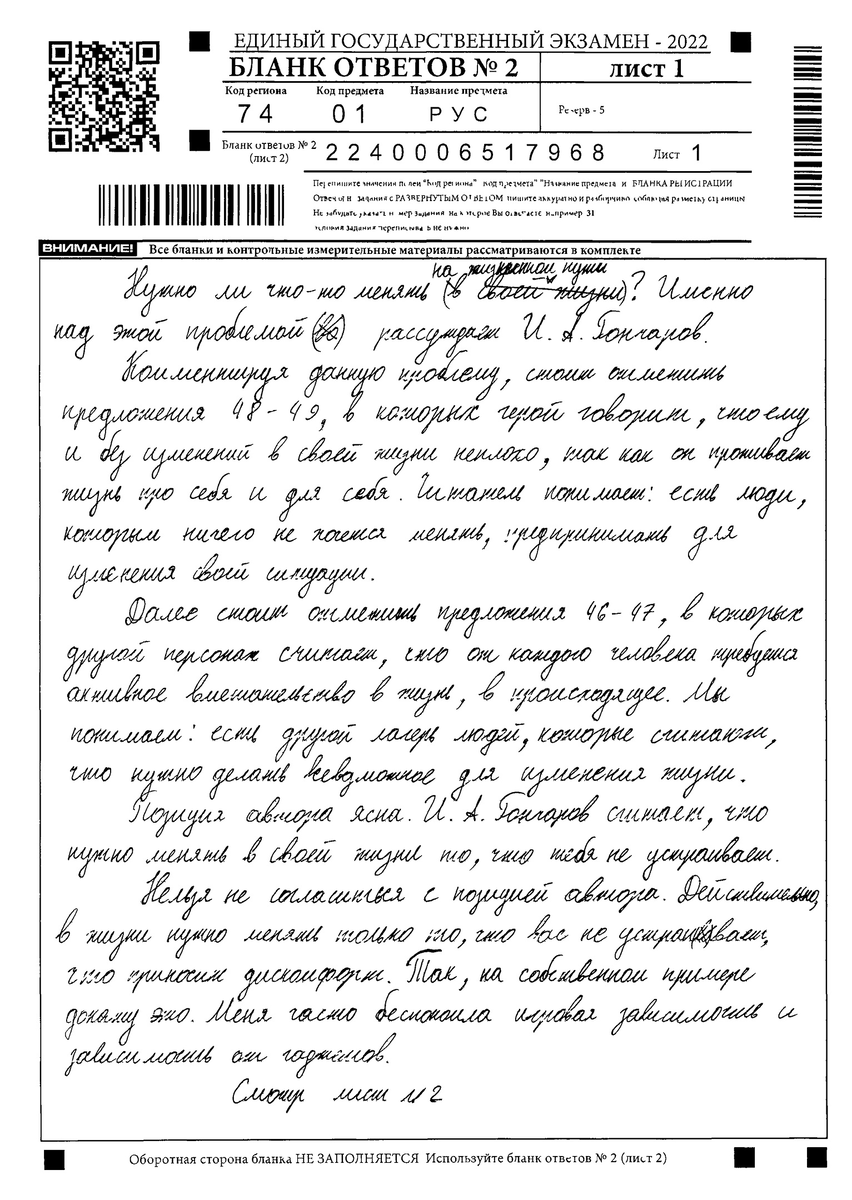 ЕДИНЫЙ ГОСУДАРСТВЕННЫЙ ЭКЗАМЕН - 2022
БЛАНК ОТВЕТОВ № 2
ЛИСТ 1
Код региона
Код предмета
Название предмета
74
01
РУС
Резерв - 5
Бланк ответов № 2
(лист 2)
2240006517968
Лист 1
Перепишите значения полей "Код региона" "Код предмета" "Название предмета и БЛАНКА РЕГИСТРАЦИИ
Отвечая на задания с РАЗВЕРНУТЫМ ОТВЕТОМ пишите аккуратно и разборчиво соблюдая разметку страницы
Не забудьте указать номер задания на которое Вы отвечаете например 31
Условия задания переписывать не нужно
ВНИМАНИЕ!
Все бланки и контрольные измерительные материалы рассматриваются в комплекте
на жизненном пути
Нужно ли что-то менять (в своей жизни)? Именно
над этой проблемой рассуждает И. А. Гончаров.
Комментируя данную проблему, стоит отметить
предложения 48-49, в которых герой говорит, что ему
и без изменений в своей жизни неплохо, так как он проживает
жизнь про себя и для себя. Читатель понимает: есть люди,
которым ничего не хочется менять, предпринимать для
изменения своей ситуации.
Далее стоит отметить предложения 46-47, в которых
другой персонаж считает, что от каждого человека требуется
активное вмешательство в жизнь, в происходящее. Мы
понимаем: есть другой лагерь людей, которые считают,
что нужно делать всевозможное для изменения жизни.
Позиция автора ясна. И. А. Гончаров считает, что
нужно менять в своей жизни то, что тебя не устраивает.
Нельзя не согласиться с позицией автора. Действительно,
в жизни нужно менять только то, что вас не устраивает,
что приносит дискомфорт. Так, на собственном примере
докажу это. Меня часто беспокоила игровая зависимость и
зависимость от гаджетов.
Смотр лист №2
Оборотная сторона бланка НЕ ЗАПОЛНЯЕТСЯ Используйте бланк ответов № 2 (лист 2)